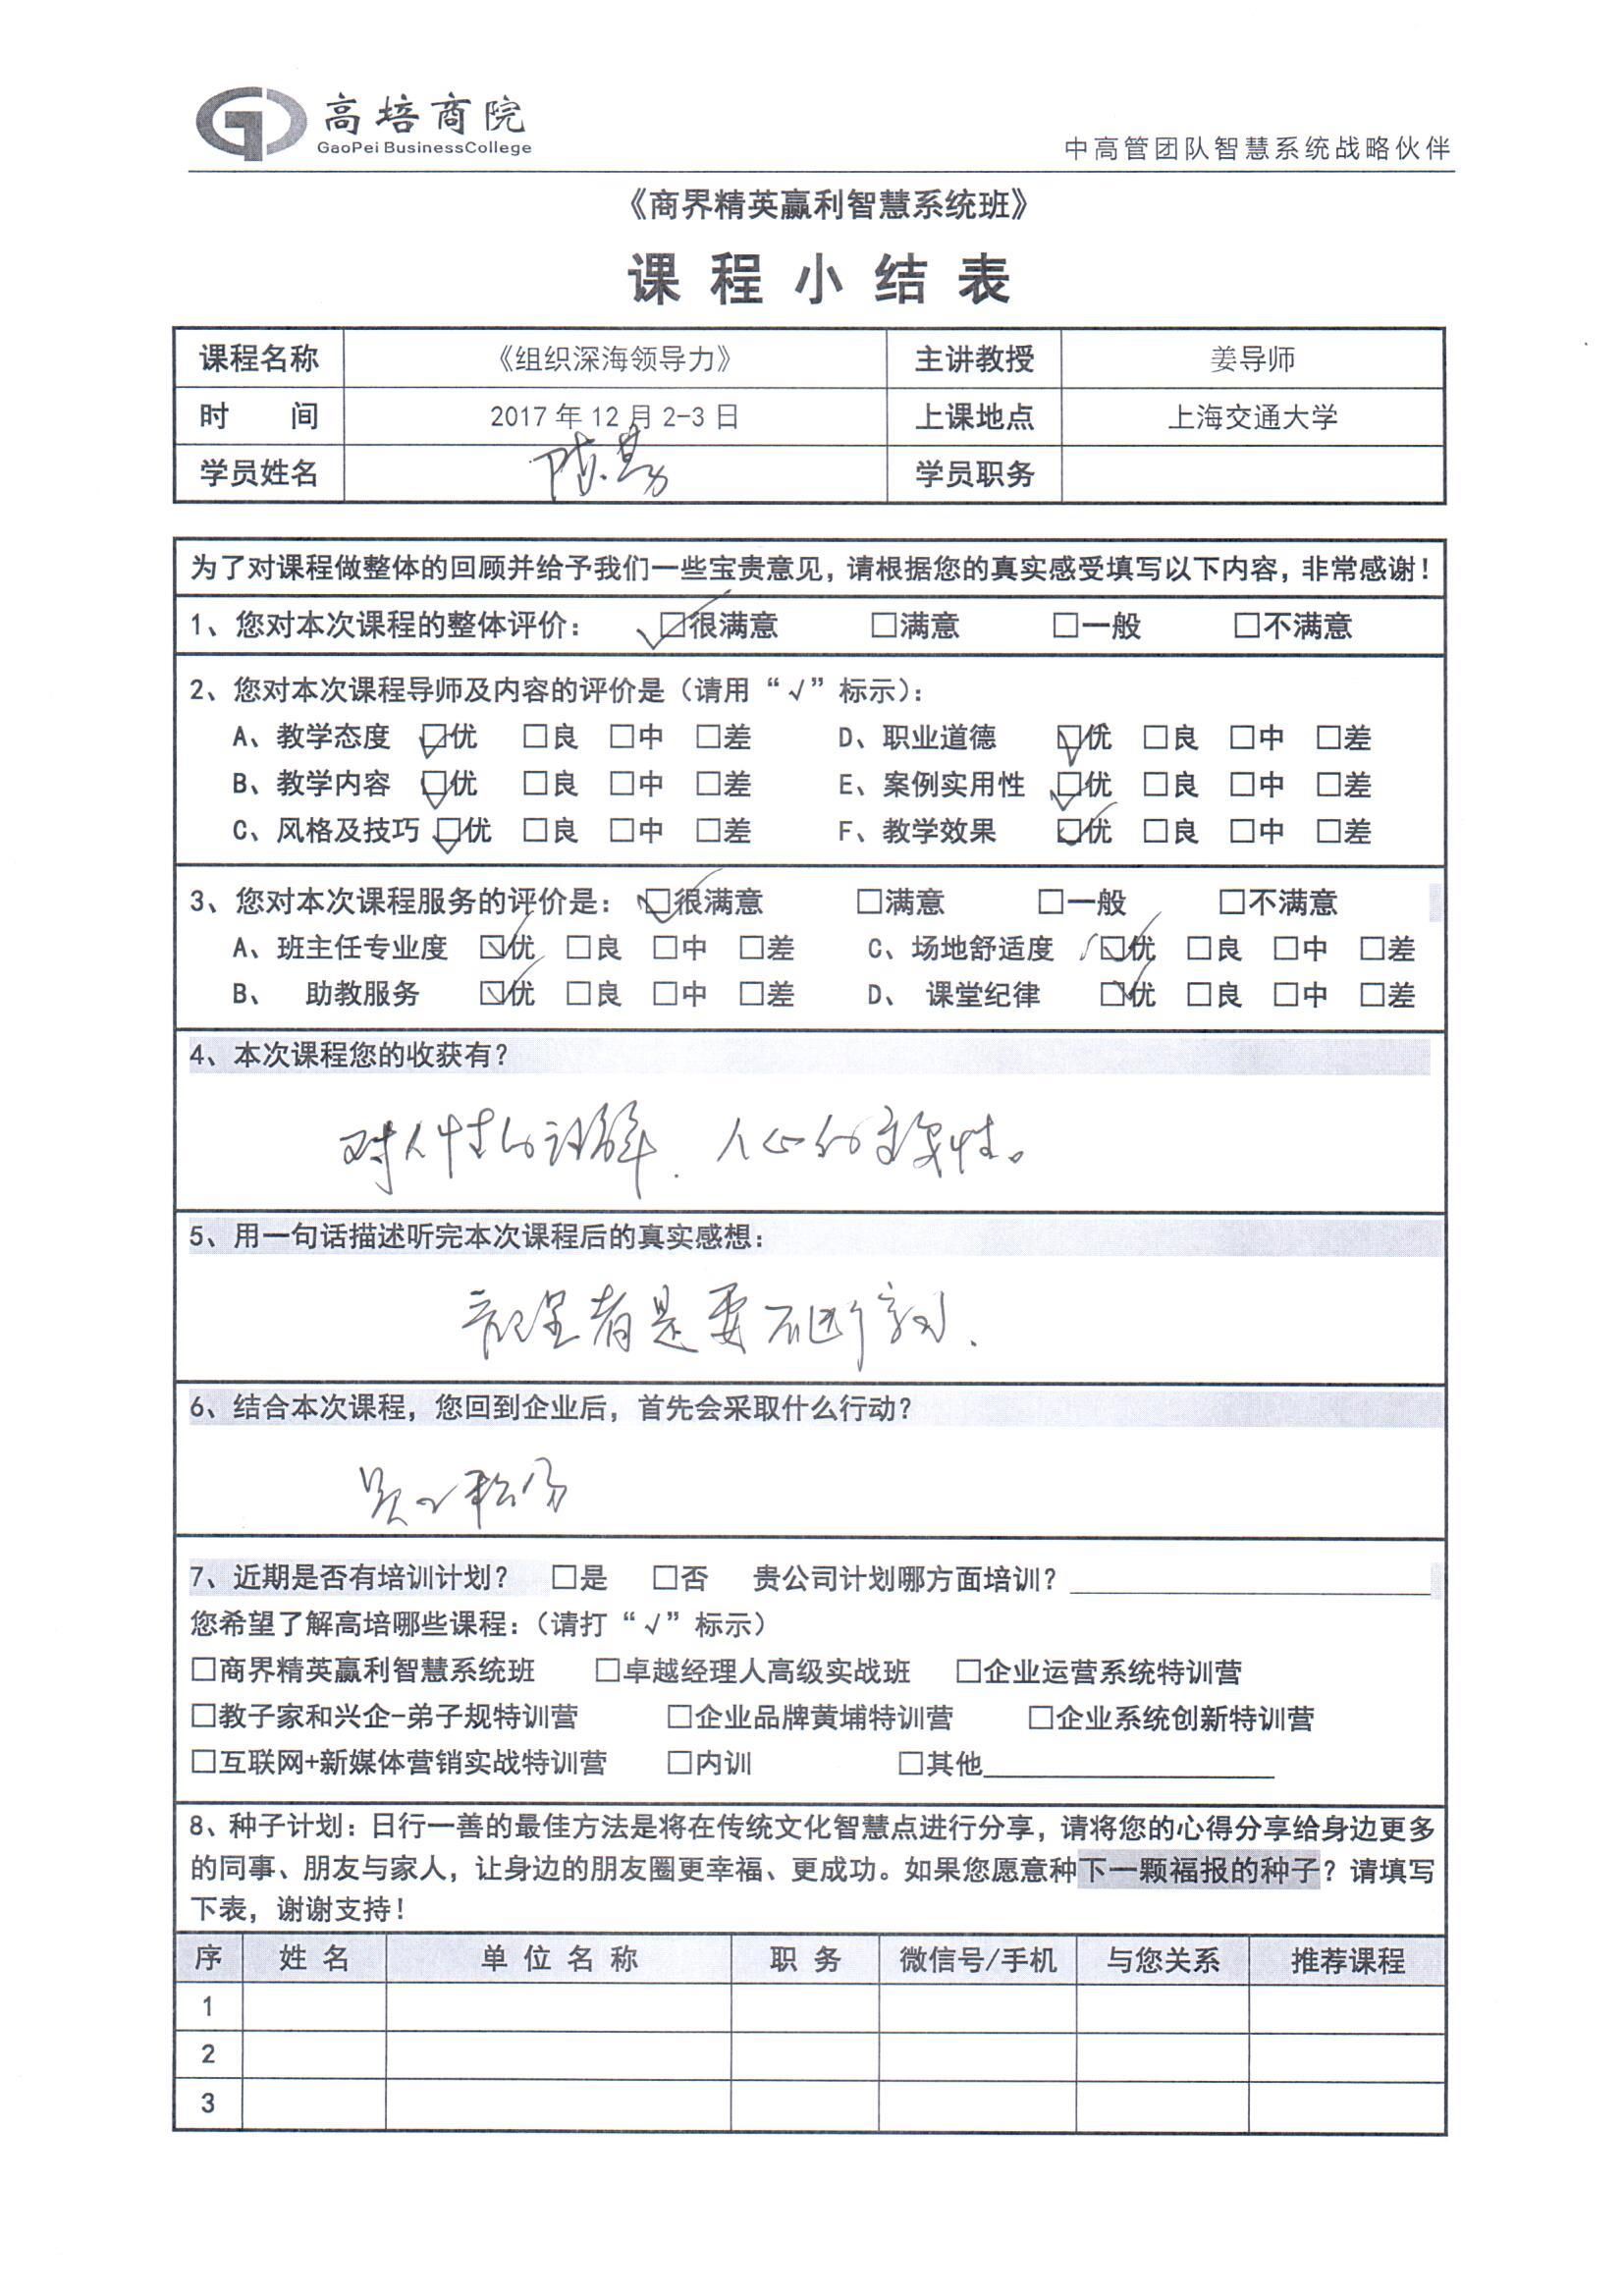 高培商院
GaoPei BusinessCollege
中高管团队智慧系统战略伙伴
《商界精英赢利智慧系统班》
课程小结表
课程名称 《组织深海领导力》 主讲教授 姜导师
时 间 2017年12月2-3日 上课地点 上海交通大学
学员姓名 陈 学员职务
为了对课程做整体的回顾并给予我们一些宝贵意见，请根据您的真实感受填写以下内容，非常感谢！
1、您对本次课程的整体评价： ☑很满意 □满意 □一般 □不满意
2、您对本次课程导师及内容的评价是（请用“√”标示）：
A、教学态度 ☑优 □良 □中 □差 D、职业道德 ☑优 □良 □中 □差
B、教学内容 ☑优 □良 □中 □差 E、案例实用性 ☑优 □良 □中 □差
C、风格及技巧 ☑优 □良 □中 □差 F、教学效果 ☑优 □良 □中 □差
3、您对本次课程服务的评价是： ☑很满意 □满意 □一般 □不满意
A、班主任专业度 ☑优 □良 □中 □差 C、场地舒适度 ☑优 □良 □中 □差
B、 助教服务 ☑优 □良 □中 □差 D、 课堂纪律 ☑优 □良 □中 □差
4、本次课程您的收获有？
对人性的 解、人心的 性。
5、用一句话描述听完本次课程后的真实感想：
者是要不断
6、结合本次课程，您回到企业后，首先会采取什么行动？
7、近期是否有培训计划？ □是 □否 贵公司计划哪方面培训？
您希望了解高培哪些课程：（请打“√”标示）
□商界精英赢利智慧系统班 □卓越经理人高级实战班 □企业运营系统特训营
□教子家和兴企-弟子规特训营 □企业品牌黄埔特训营 □企业系统创新特训营
□互联网+新媒体营销实战特训营 □内训 □其他
8、种子计划：日行一善的最佳方法是将在传统文化智慧点进行分享，请将您的心得分享给身边更多
的同事、朋友与家人，让身边的朋友圈更幸福、更成功。如果您愿意种下一颗福报的种子？请填写
下表，谢谢支持！
序 姓名 单位名称 职务 微信号/手机 与您关系 推荐课程
1
2
3